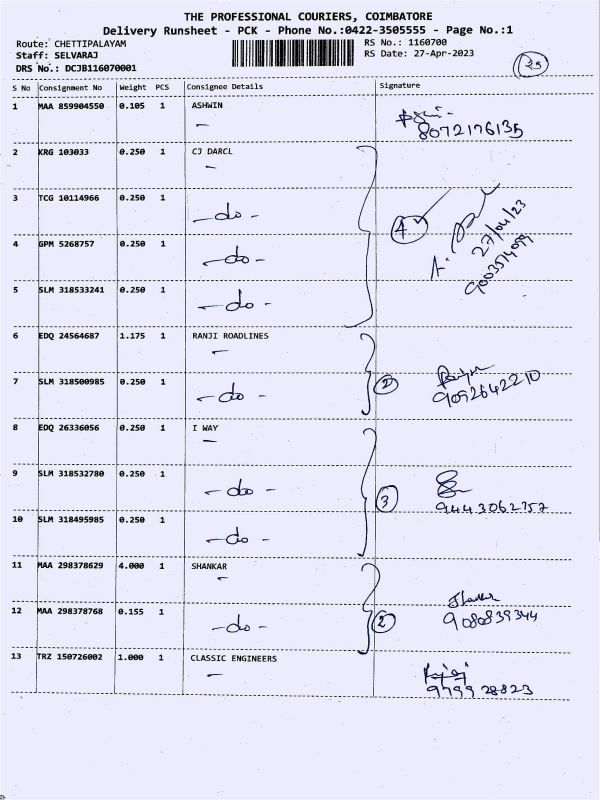 THE PROFESSIONAL COURIERS, COIMBATORE
Delivery Runsheet - PCK - Phone No.:0422-3505555 - Page No.:1
Route: CHETTIPALAYAM RS No.: 1160700
Staff: SELVARAJ RS Date: 27-Apr-2023
DRS No.: DCJB116070001
S No Consignment No Weight PCS Consignee Details Signature
1 MAA 859904550 0.105 1 ASHWIN
8072176135
2 KRG 103033 0.250 1 CJ DARCL
3 TCG 10114966 0.250 1 -do-
4 27/04/23
4 GPM 5268757 0.250 1 -do-
9003514099
5 SLM 318533241 0.250 1 -do-
6 EDQ 24564687 1.175 1 RANJI ROADLINES
7 SLM 318500985 0.250 1 -do- 2
9092642210
8 EDQ 26336056 0.250 1 I WAY
9 SLM 318532780 0.250 1 -do- 3
9443062757
10 SLM 318495985 0.250 1 -do-
11 MAA 298378629 4.000 1 SHANKAR
12 MAA 298378768 0.155 1 -do- 2
9080839344
13 TRZ 150726002 1.000 1 CLASSIC ENGINEERS